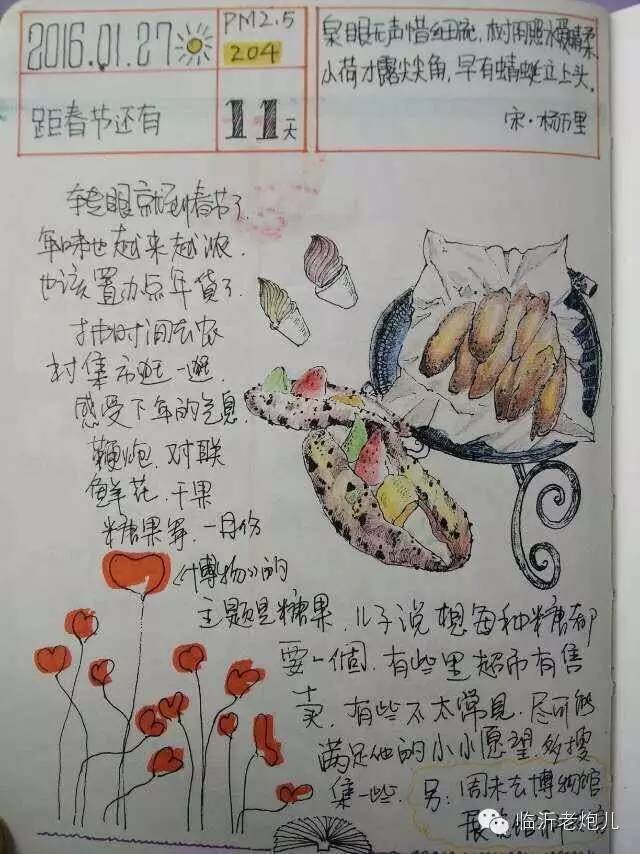 2016.01.27
PM2.5
204
距春节还有
11天
泉眼无声惜细流，树阴照水爱晴柔
小荷才露尖尖角，早有蜻蜓立上头。
宋·杨万里
转眼就到春节了
年味也越来越浓.
也该置办点年货了.
抽时间去农
村集市逛一逛.
感受下年的气息.
鞭炮.对联
鲜花.干果
糖果等.一月份
《博物》的
主题是糖果.儿子说想每种糖都
要一個.有些里超市有售
卖.有些不太常见.尽可能
满足他的小小愿望 多搜
集一些.
另:周末去博物馆
临沂老炮儿